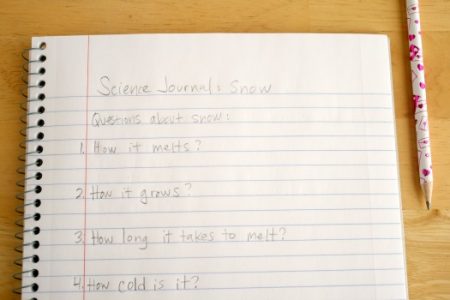 Science Journal: Snow
Questions about snow:
1. How it melts?
2. How it grows?
3. How long it takes to melt?
4. How cold is it?